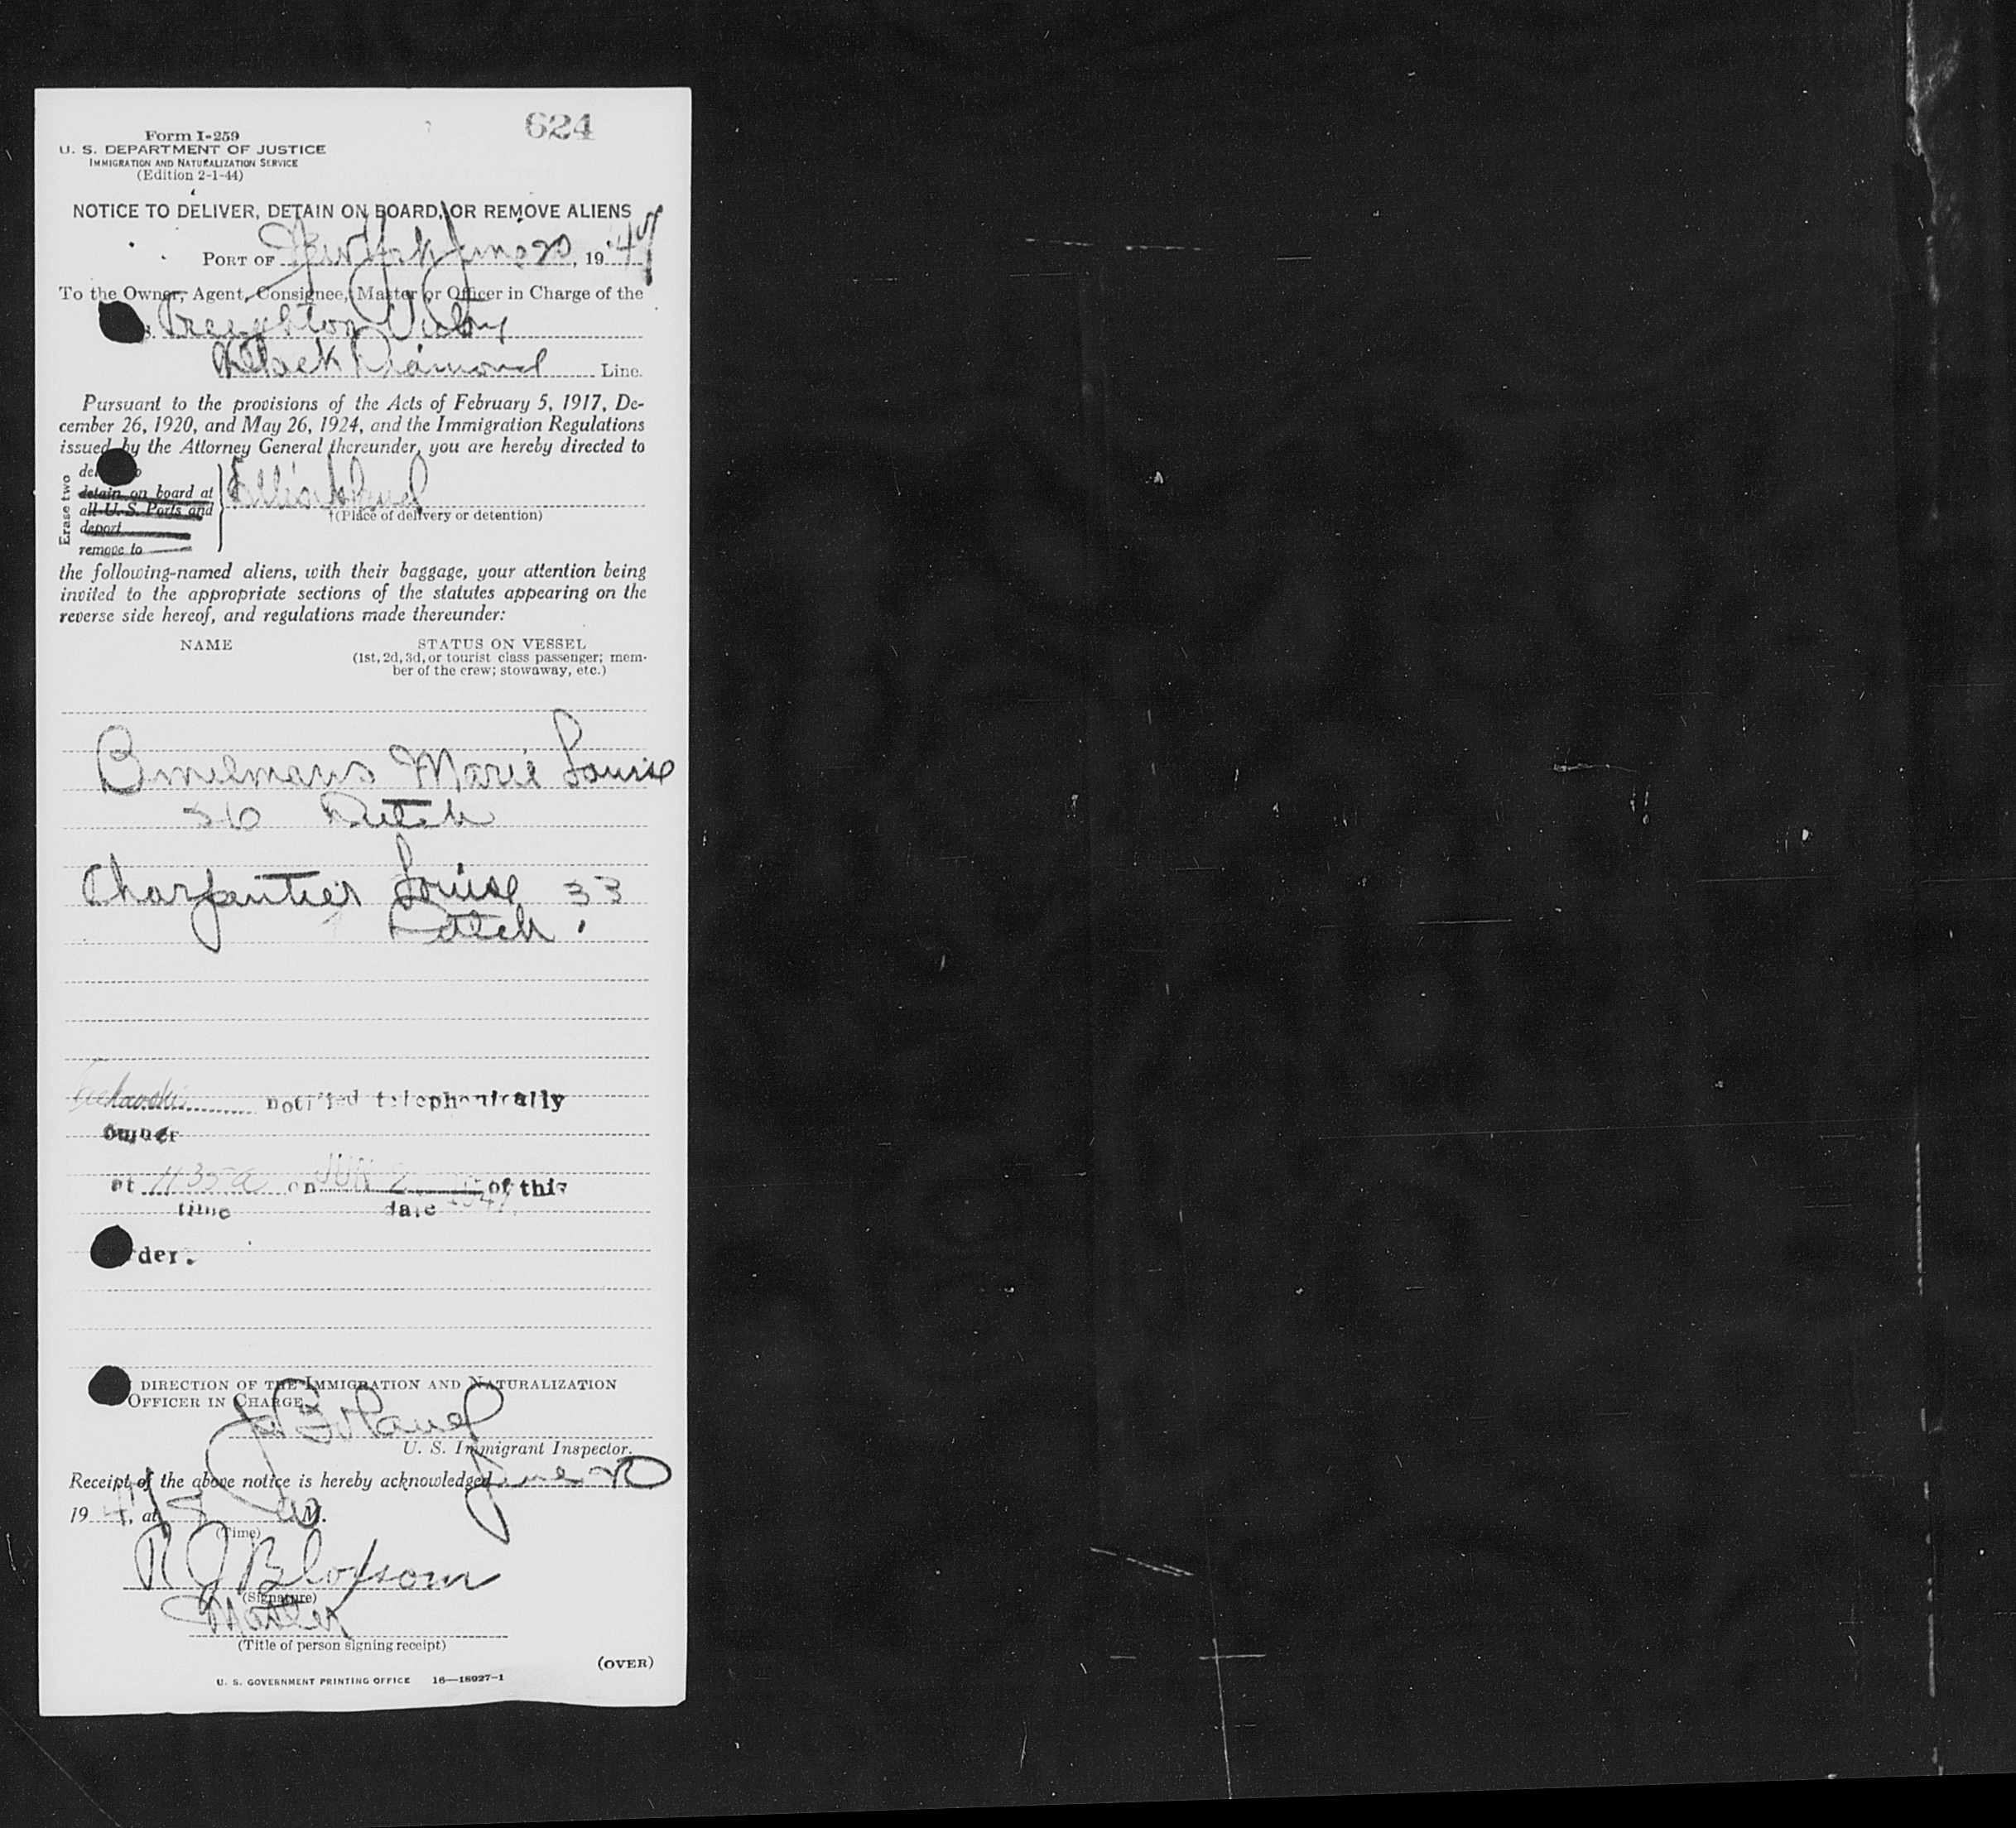 624
Form I-259
U. S. DEPARTMENT OF JUSTICE
IMMIGRATION AND NATURALIZATION SERVICE
(Edition 2-1-44)
NOTICE TO DELIVER, DETAIN ON BOARD, OR REMOVE ALIENS
PORT OF New York June 20, 1947
To the Owner, Agent, Consignee, Master or Officer in Charge of the
Victory
Black Diamond Line.
Pursuant to the provisions of the Acts of February 5, 1917, De-
cember 26, 1920, and May 26, 1924, and the Immigration Regulations
issued by the Attorney General thereunder, you are hereby directed to
Erase two
detain on board at
all U. S. Ports and
deport
remove to
Ellis Island
†(Place of delivery or detention)
the following-named aliens, with their baggage, your attention being
invited to the appropriate sections of the statutes appearing on the
reverse side hereof, and regulations made thereunder:
NAME STATUS ON VESSEL
(1st, 2d, 3d, or tourist class passenger; mem-
ber of the crew; stowaway, etc.)
Marie Louise
36 Dutch
Charpentier Louise 33
Dutch
notified telephonically
owner
at 11 35 a on JUN 2 1947 of this
time date
der.
DIRECTION OF THE IMMIGRATION AND NATURALIZATION
OFFICER IN CHARGE
U. S. Immigrant Inspector.
Receipt of the above notice is hereby acknowledged June 20
1947, at 8 a M.
(Time)
R J Blossom
(Signature)
Master
(Title of person signing receipt)
(OVER)
U. S. GOVERNMENT PRINTING OFFICE 16—18027-1